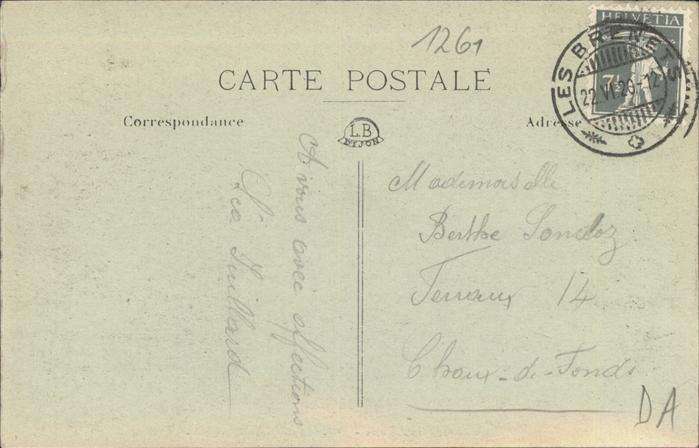 1261
HELVETIA
7½
LES BRENETS
22.VI.20.-12
CARTE POSTALE
Correspondance
L.B
DIJON
Adresse
A vous avec affections
Mademoiselle
Berthe Sandoz
Terraux 14
Chaux-de-Fonds
DA